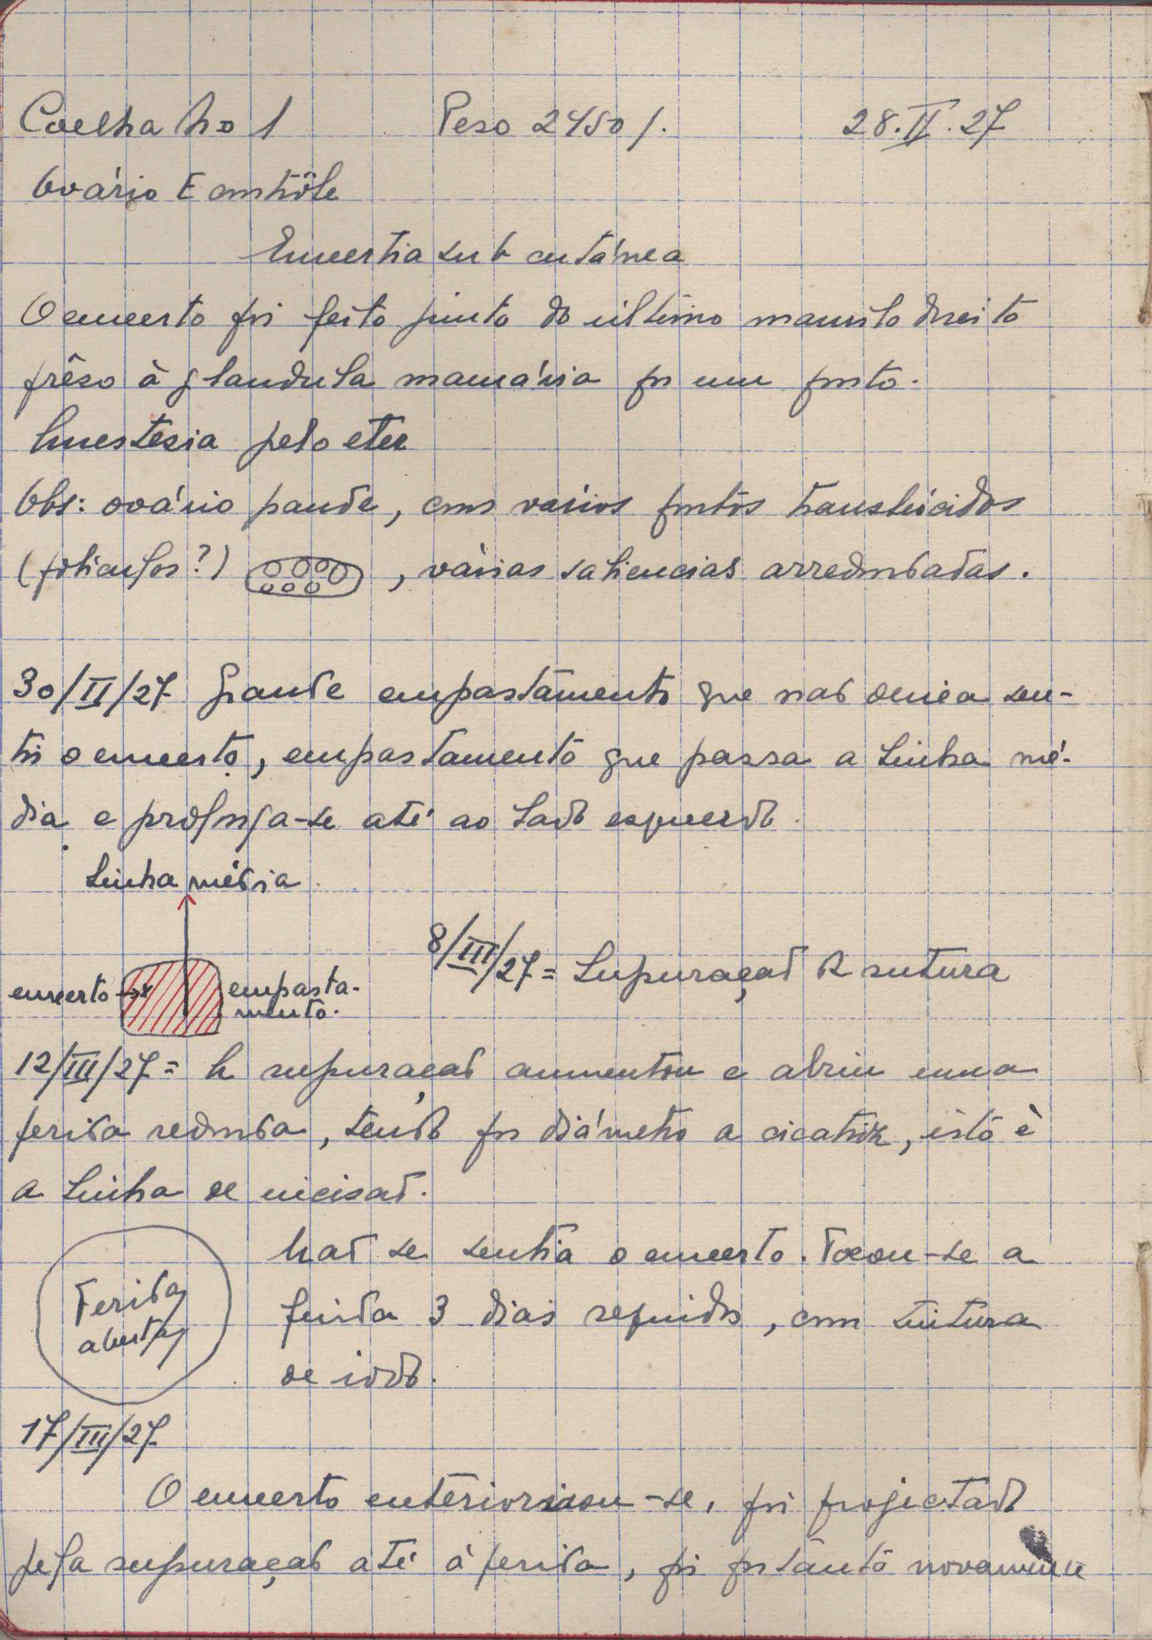 Coelha No 1 Peso 2450 g. 28.II.27
Ovário E contrôle
Enxertia sub cutánea
O enxerto foi feito junto do último mamilo direito
prêso à glandula mamária por um ponto.
Anestesia pelo eter
Obs: ovário grande, com varios pontos translúcidos
(foliculos?) , várias saliencias arredondadas.
30/II/27 Grande empastamento que não deixa sen-
tir o enxerto, empastamento que passa a linha mé-
dia e prolonga-se até ao lado esquerdo.
Linha média
enxerto → x empasta-
mento.
8/III/27 = Supuração da sutura
12/III/27 = A supuração aumentou e abriu uma
ferida redonda, tendo por diámetro a cicatriz, isto è
a linha de incisão.
Ferida
aberta
Não se sentia o enxerto. Tocou-se a
ferida 3 dias seguidos, com tintura
de iodo.
17/III/27
O enxerto exteriorisou-se, foi projectado
pela supuração até á ferida, foi portanto novamente